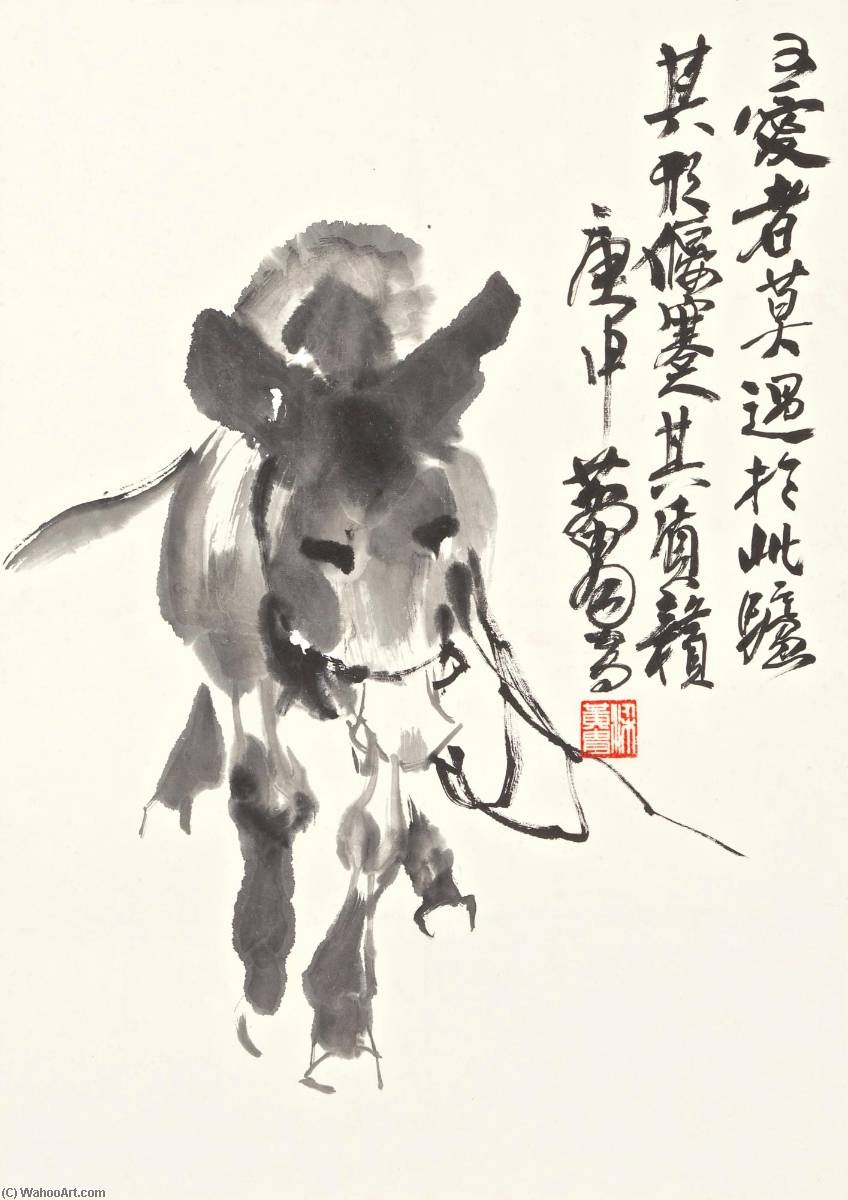 可愛者莫過於此驢
其形偃蹇其質贛
庚申 黄胄寫
梁黄胄
(C) WahooArt.com